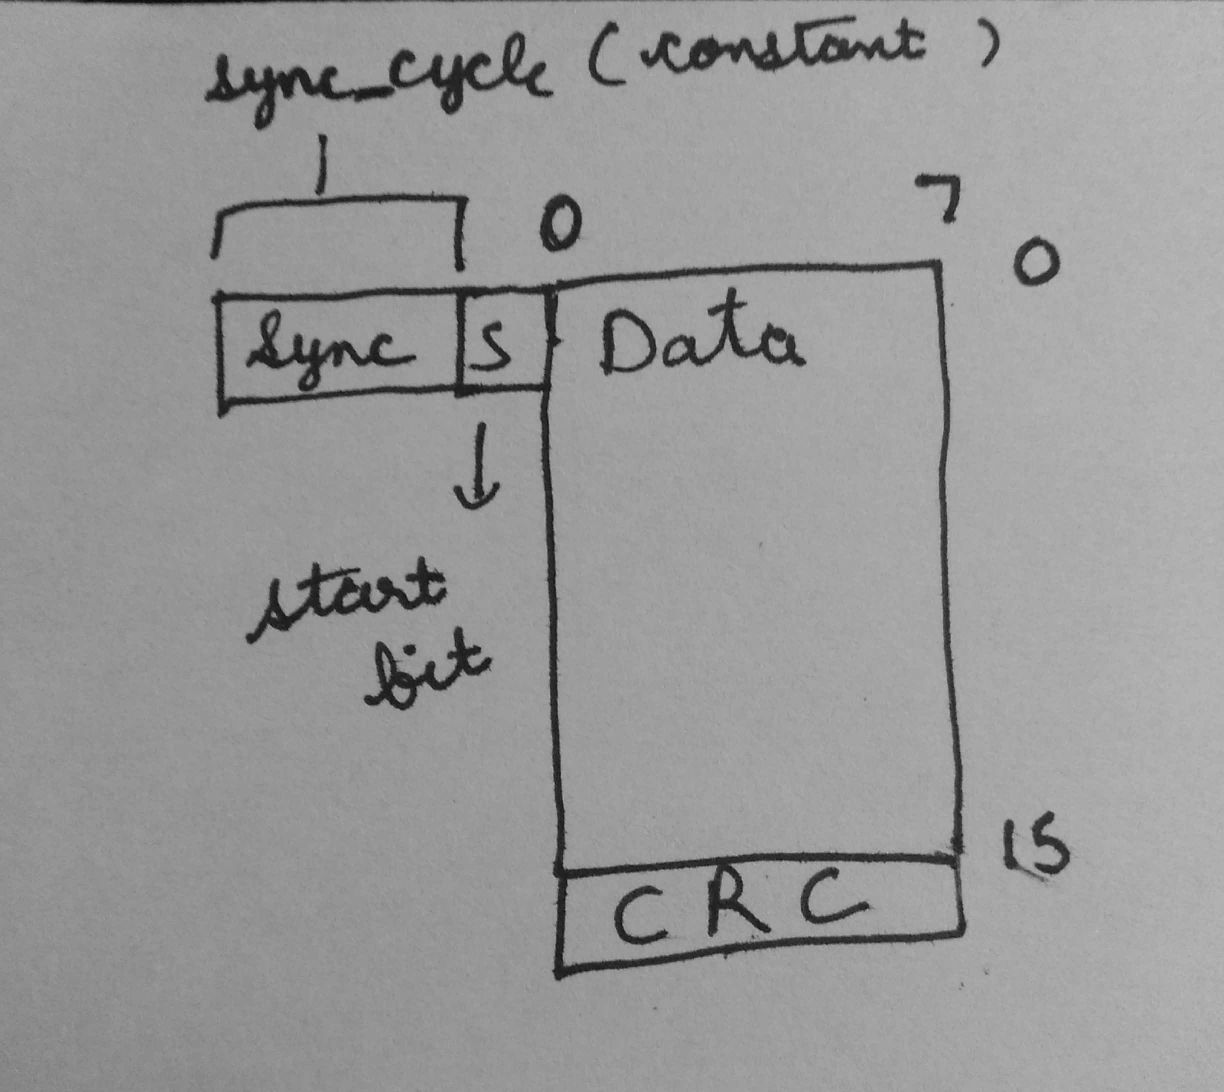 sync_cycle (constant)
0 7
0
Sync S Data
start
bit
15
CRC